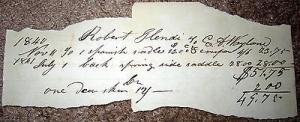 1840 Robert Rhende To C. D. Wayland
Nov 11 To 1 spanish sadle 23.75
1841
July 1 back spring side saddle 28.00 28.00
$51.75
Cr
one deer skin by 2.00
49.75